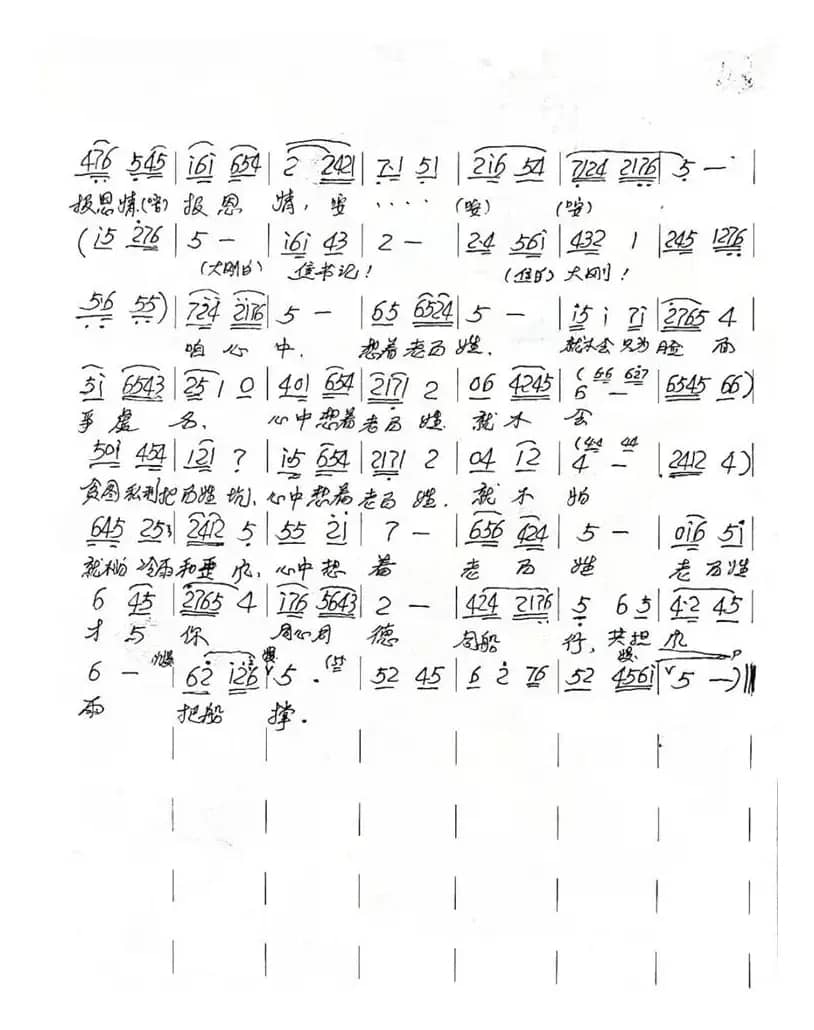 476 545 | i6i 654 | 2 2421 | 7·1 51 | 2i6 54 | 7124 2176 | 5 — |
报恩情(哪) 报恩 情，安 ···· (安) (安)
(i5 276 | 5 — | i6i 43 | 2 — | 2·4 56i | 432 1 | 245 1276 |
(大刚白) 书记! 大刚!
5·6 55) | 724 2i76 | 5 — | 65 6524 | 5 — | i5 i 7i | 2765 4 |
咱心 中， 想着老百姓， 就不会只为脸面
5i 6543 | 25 1 0 | 401 654 | 2171 2 | 06 4245 | 6 — (66 627 | 6545 66) |
争虚 名， 心中想着老百姓 就不 会
50i 454 | 121 7 | i5 654 | 2171 2 | 04 12 | 4 — (44 44 | 2412 4) |
贪图私利把百姓坑，心中想着老百姓，就不怕
645 25 | 2412 5 | 55 2i | 7 — | 656 424 | 5 — | 0i6 5i |
就不怕冷雨和 风，心中想 着 老百 姓 老百姓
6 45 | 2765 4 | i76 5643 | 2 — | 424 2176 | 5 65 | 4·2 45 |
才与 你 同心同 德 同船 行，共担风
6 — | 62 i26 | 5 · | 52 45 | 6 2 76 | 52 456i | 5 —) ‖
雨 把船 撑．